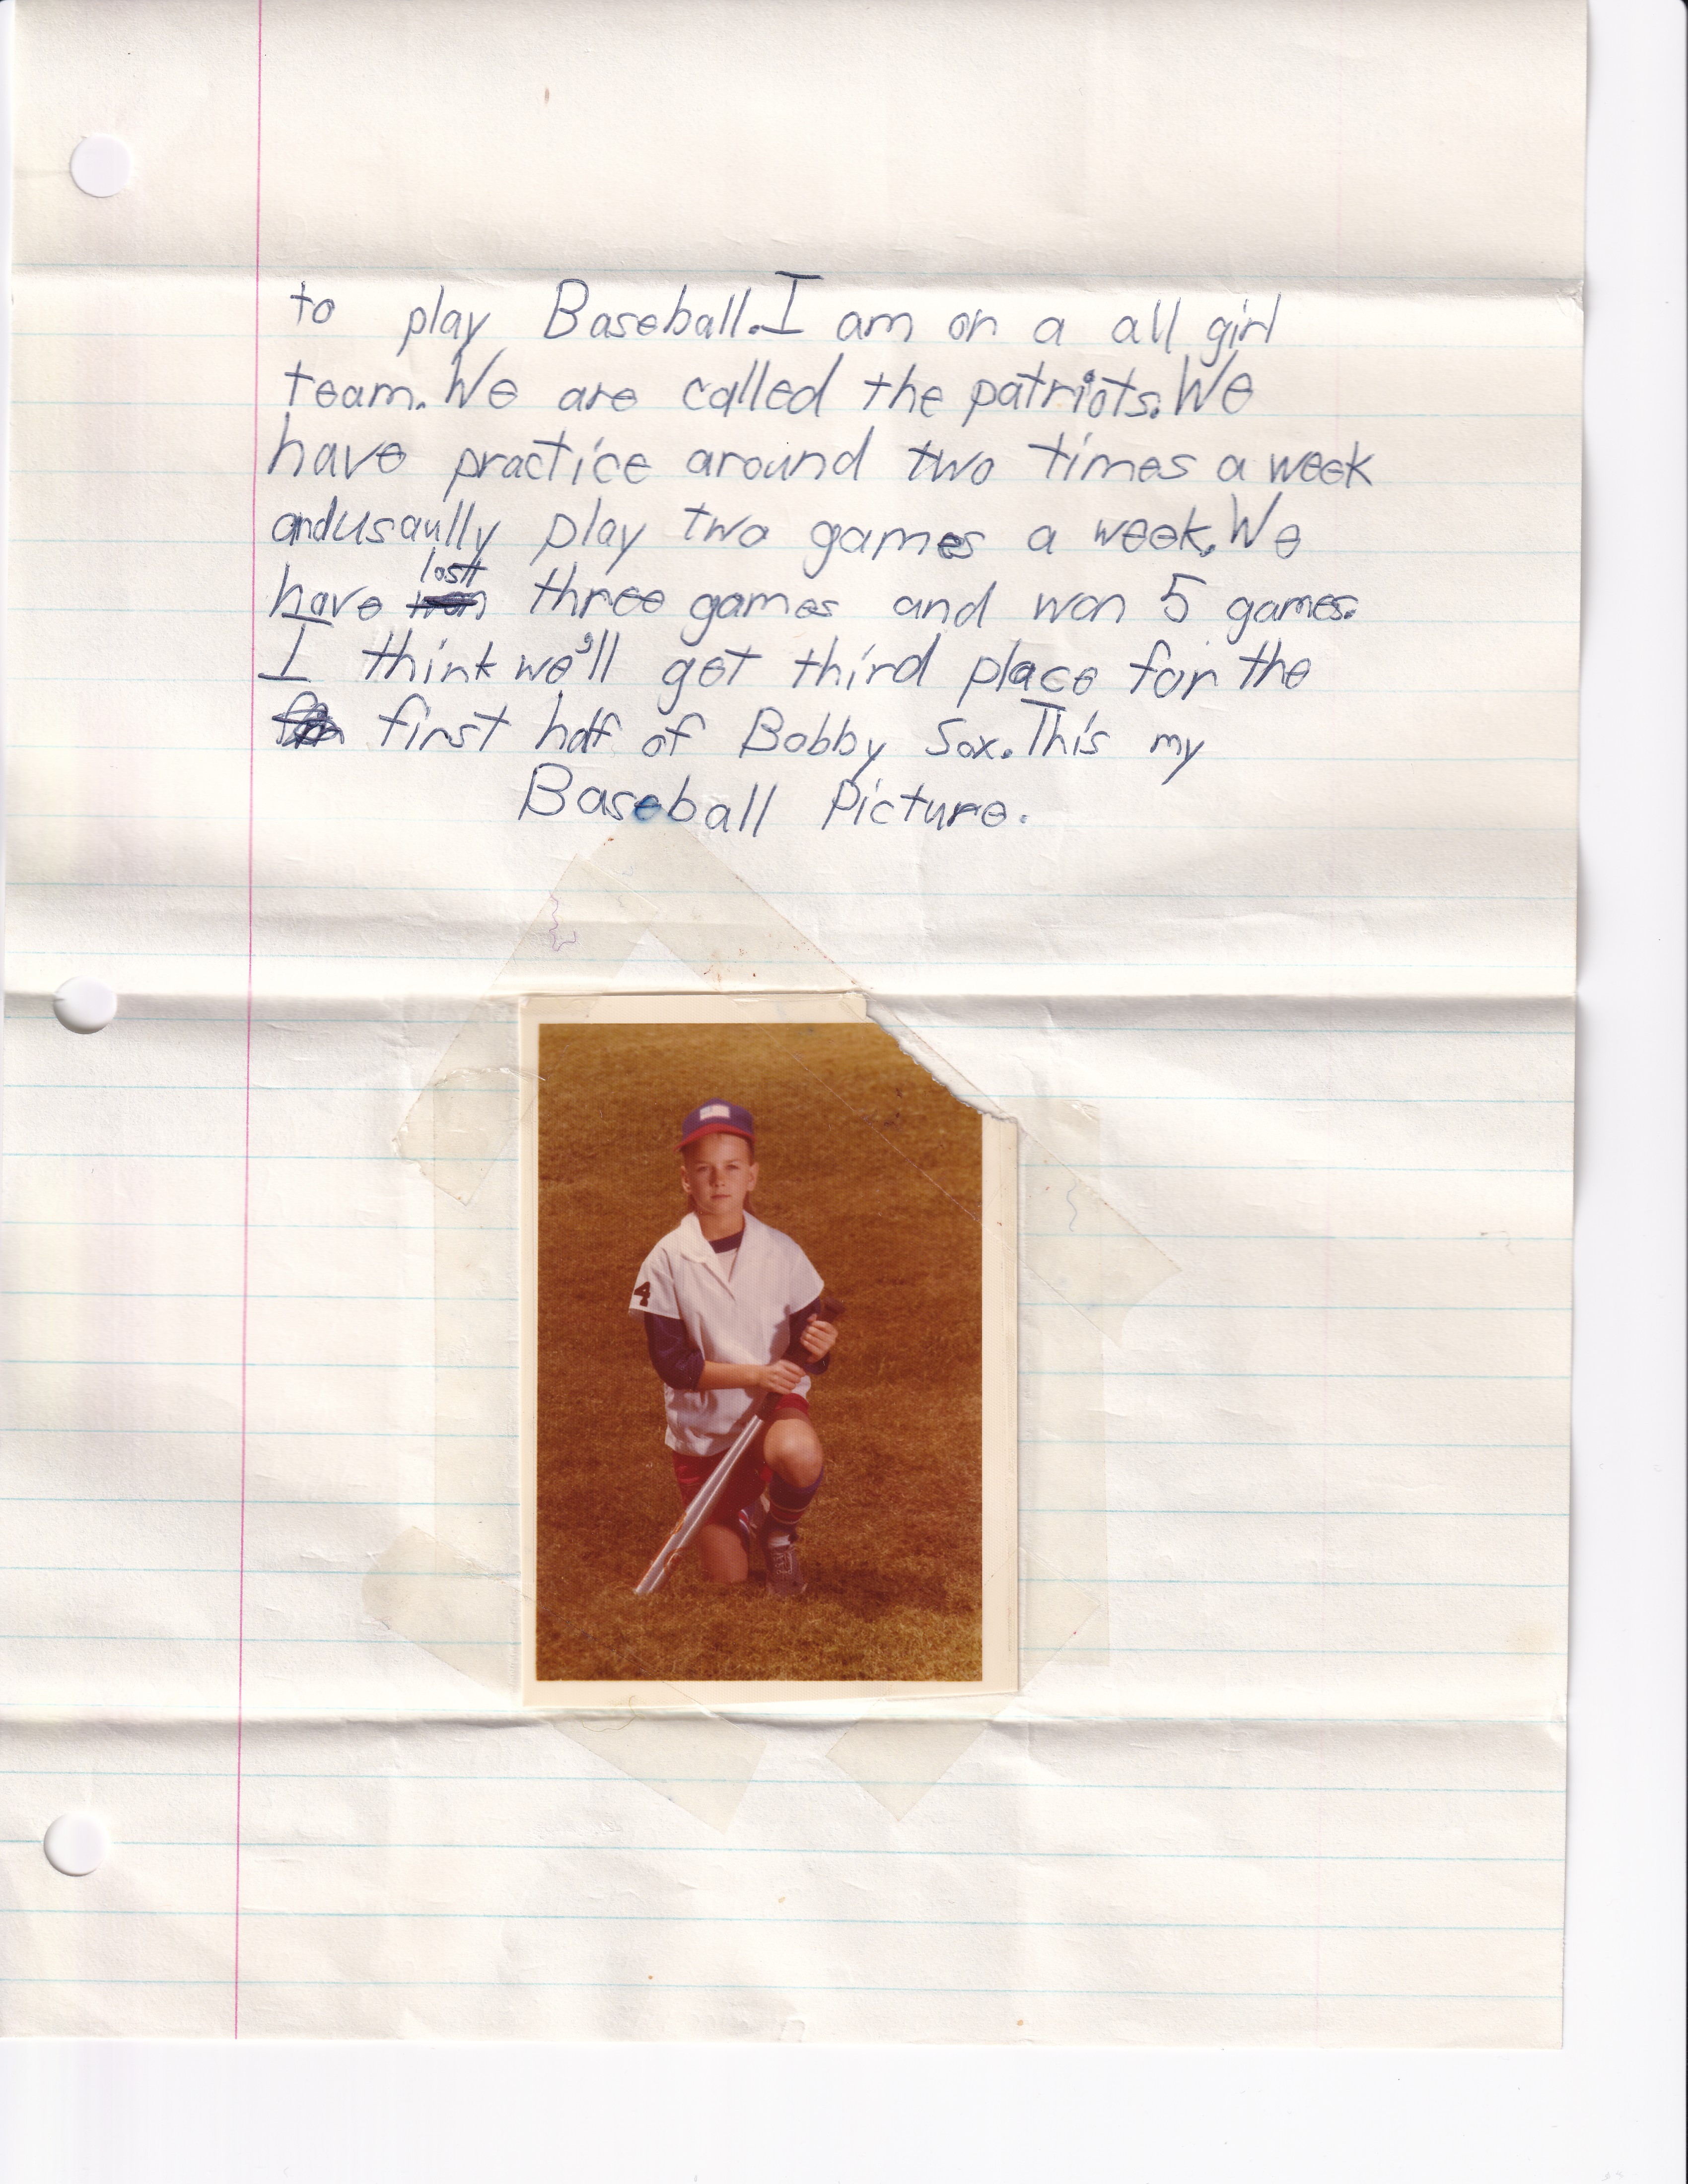 to play Baseball. I am on a all girl
team. We are called the patriots. We
have practice around two times a week
and usaully play two games a week. We
have lost three games and won 5 games.
I think we'll get third place for the
first half of Bobby Sox. This my
Baseball Picture.
4